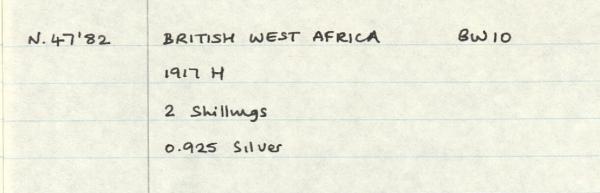 N.47'82 BRITISH WEST AFRICA BW10
1917 H
2 Shillings
0.925 Silver